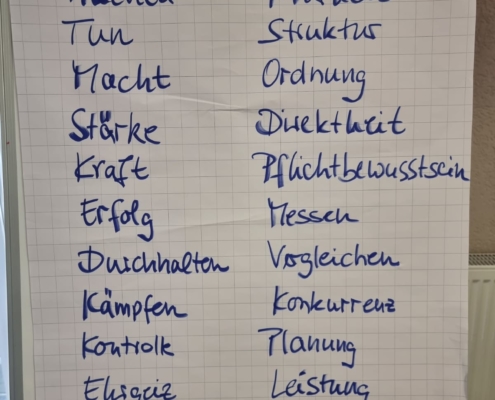 Tun Struktur
Macht Ordnung
Stärke Direktheit
Kraft Pflichtbewusstsein
Erfolg Messen
Durchhalten Vergleichen
Kämpfen Konkurrenz
Kontrolle Planung
Ehrgeiz Leistung